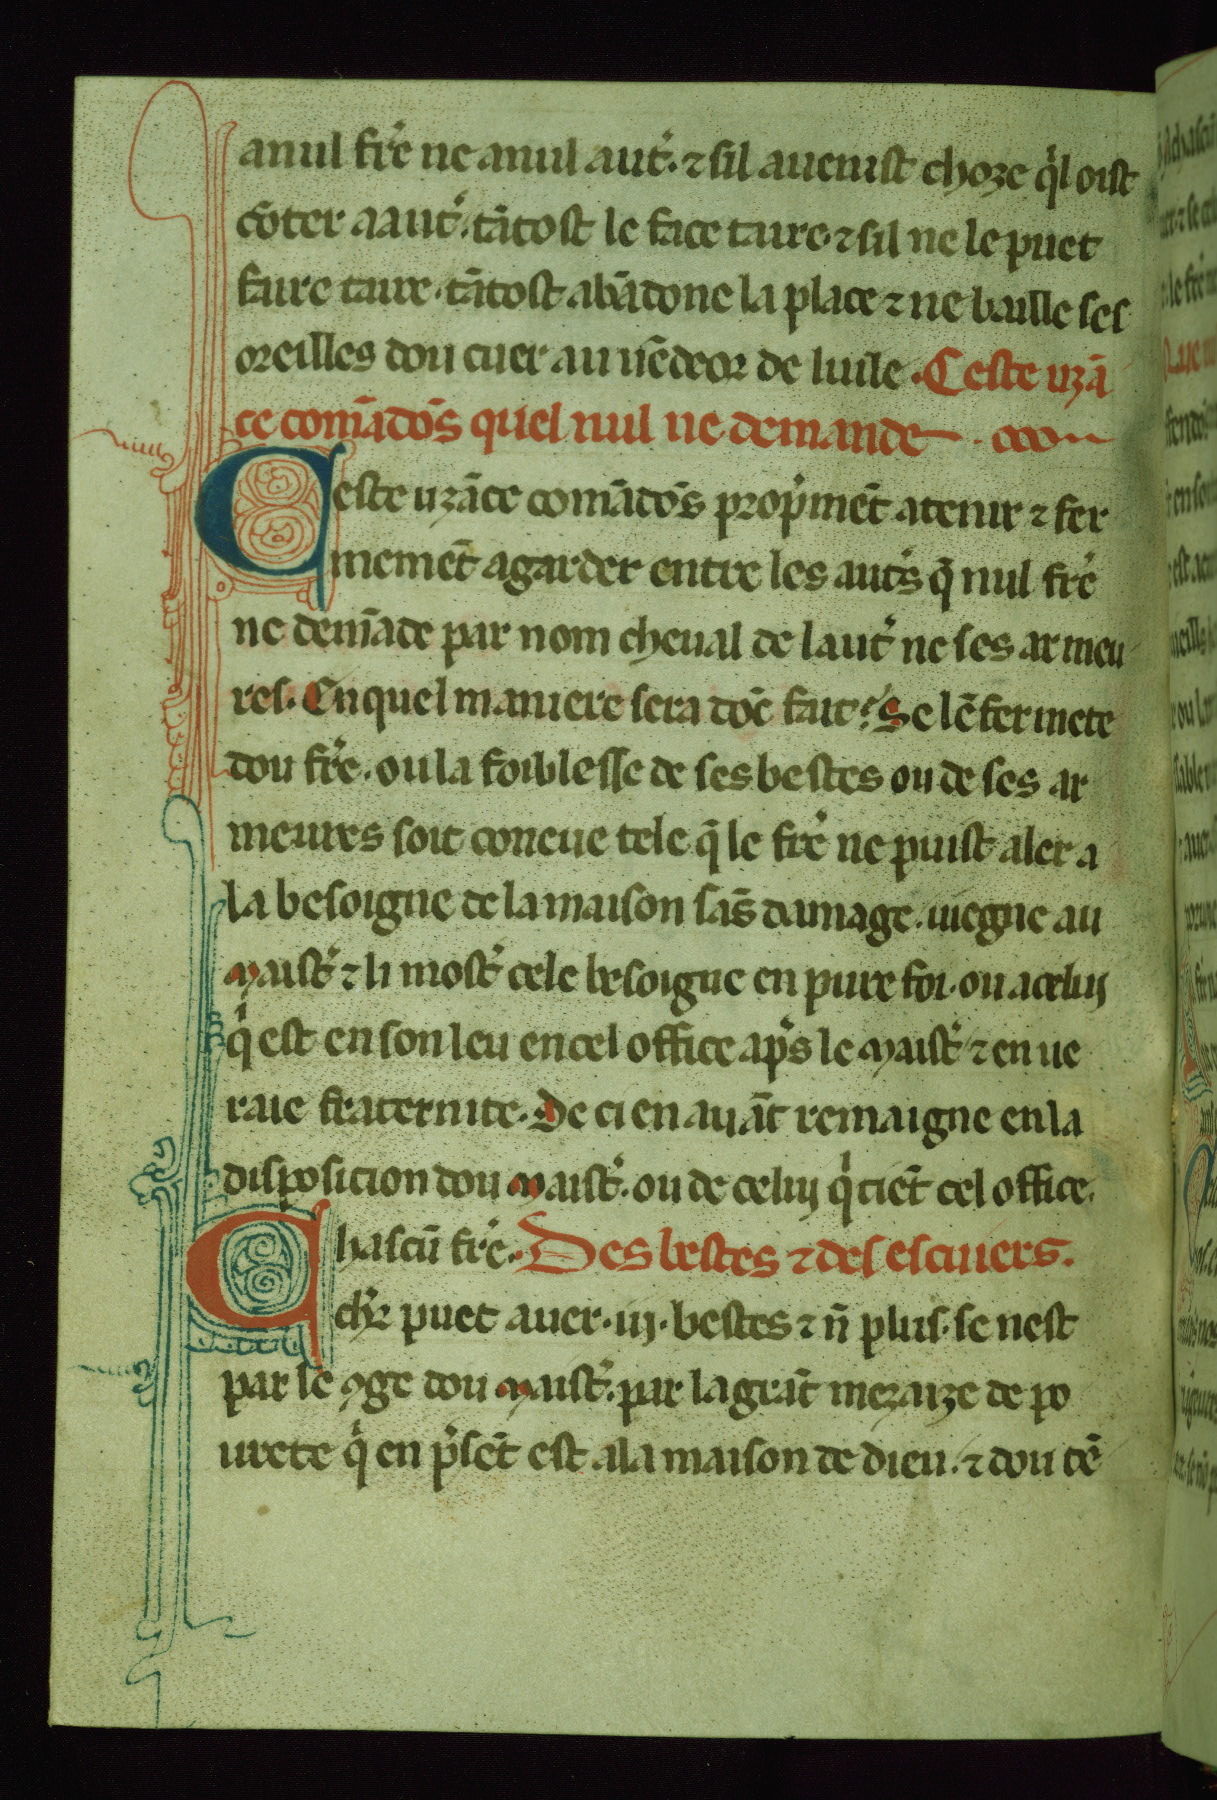 anul fr̄e ne anul aut̉. ⁊ sil auenist choze q̉l oist
cōter a aut̉. tātost le face taire. ⁊ sil ne le puet
faire taire. tātost abādone la place ⁊ ne baille ses
oreilles dou cuer au uēdeor de luile. Ceste uzā
ce comādōs quel nul ne demande
Ceste uzāce comādōs prop̄mēt atenir ⁊ fer
memēt agarder entre les aut̉s q̄ nul fr̄e
ne demāde par nom cheual de laut̉ ne ses armeu
res. En quel maniere sera dōc fait? Se lēfermete
dou fr̄e. ou la foiblesse de ses bestes ou de ses ar
meures soit coneue tele q̄ le fr̄e ne puist aler a
la besoigne de la maison sās damage. uiegne au
maist̉ ⁊ li most̉ cele besoigne en pure foi. ou a celuy
q̉ est en son leu en cel office ap̄s le maist̉ ⁊ en ue
raie fraternite. De ci en auāt remaigne en la
disposicion dou maist̉. ou de celuy q̉ tiēt cel office.
Chascū fr̄e. Des bestes ⁊ des escuiers.
ch̉r puet auer. iij. bestes ⁊ n̄ plus. se nest
par le ꝯge dou maist̉. par la grāt mezaize de po
urete q̉ en p̄sēt est ala maison de dieu. ⁊ dou tē